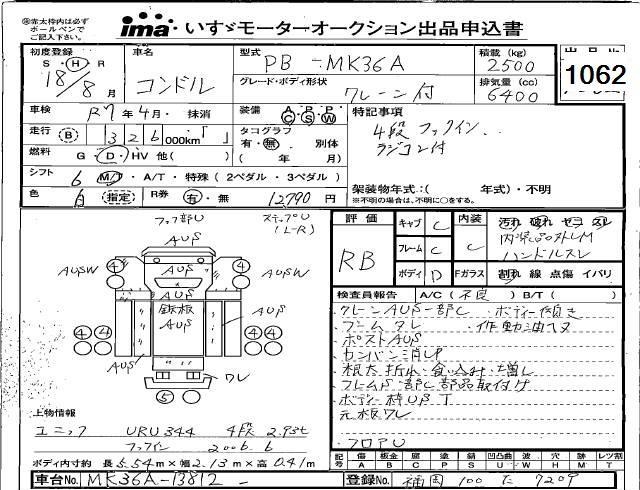 ※赤太枠内は必ず
ボールペンで
ご記入下さい。
ima いすゞモーターオークション出品申込書
初度登録 S・H・R 18/8月
車名 コンドル
型式 PB-MK36A
グレード・ボディ形状 クレーン付
積載(kg) 2500
排気量(cc) 6400
1062
車検 R7年4月・抹消
装備 A/C P/S P/W
特記事項
4段 フックイン
ラジコン付
走行 B 326,000km
タコグラフ
有・無・別体
( 年 月)
燃料 G・D・HV 他( )
シフト 6 M・A/T・特殊(2ペダル・3ペダル)
架装物年式:( 年式)・不明
※不明の場合は、不明に○をする。
色 白 (指定) R券 有・無 12790円
フック部U
ステップU
(L-R)
AUS
AUSW 4 4 AUSW
AUS
鉄板
AUS
AUS
4 4 4 4
AUS
ワレ
5
評価 RB
キャブ C 内装 C
フレーム C
ボディ D Fガラス
汚れ 破れ セコ スレ
内装品外しM
ハンドルスレ
割れ 線 点傷 イバリ
検査員報告 A/C(不良) B/T( )
・クレーンAUS一部C ・ボディー傾き
・ブームタレ ・作動油ヌケ
・ポストAUS
・カンバン消しP
・根太折れ・食い込み・増し
・フレームS一部C部品取付け
・ボディー枠UST
・元板ワレ
・フロアU
上物情報
ユニック URU344 4段 2.93t
フックイン 2006.6
ボディ内寸約 長5.54m×幅2.13m×高0.41m
記号 傷A 板金B 腐C 塗P 錆S 凹凸曲U 波W 穴H 跡M レツ割T
車台No. MK36A-13812
登録No. 福岡100た7209